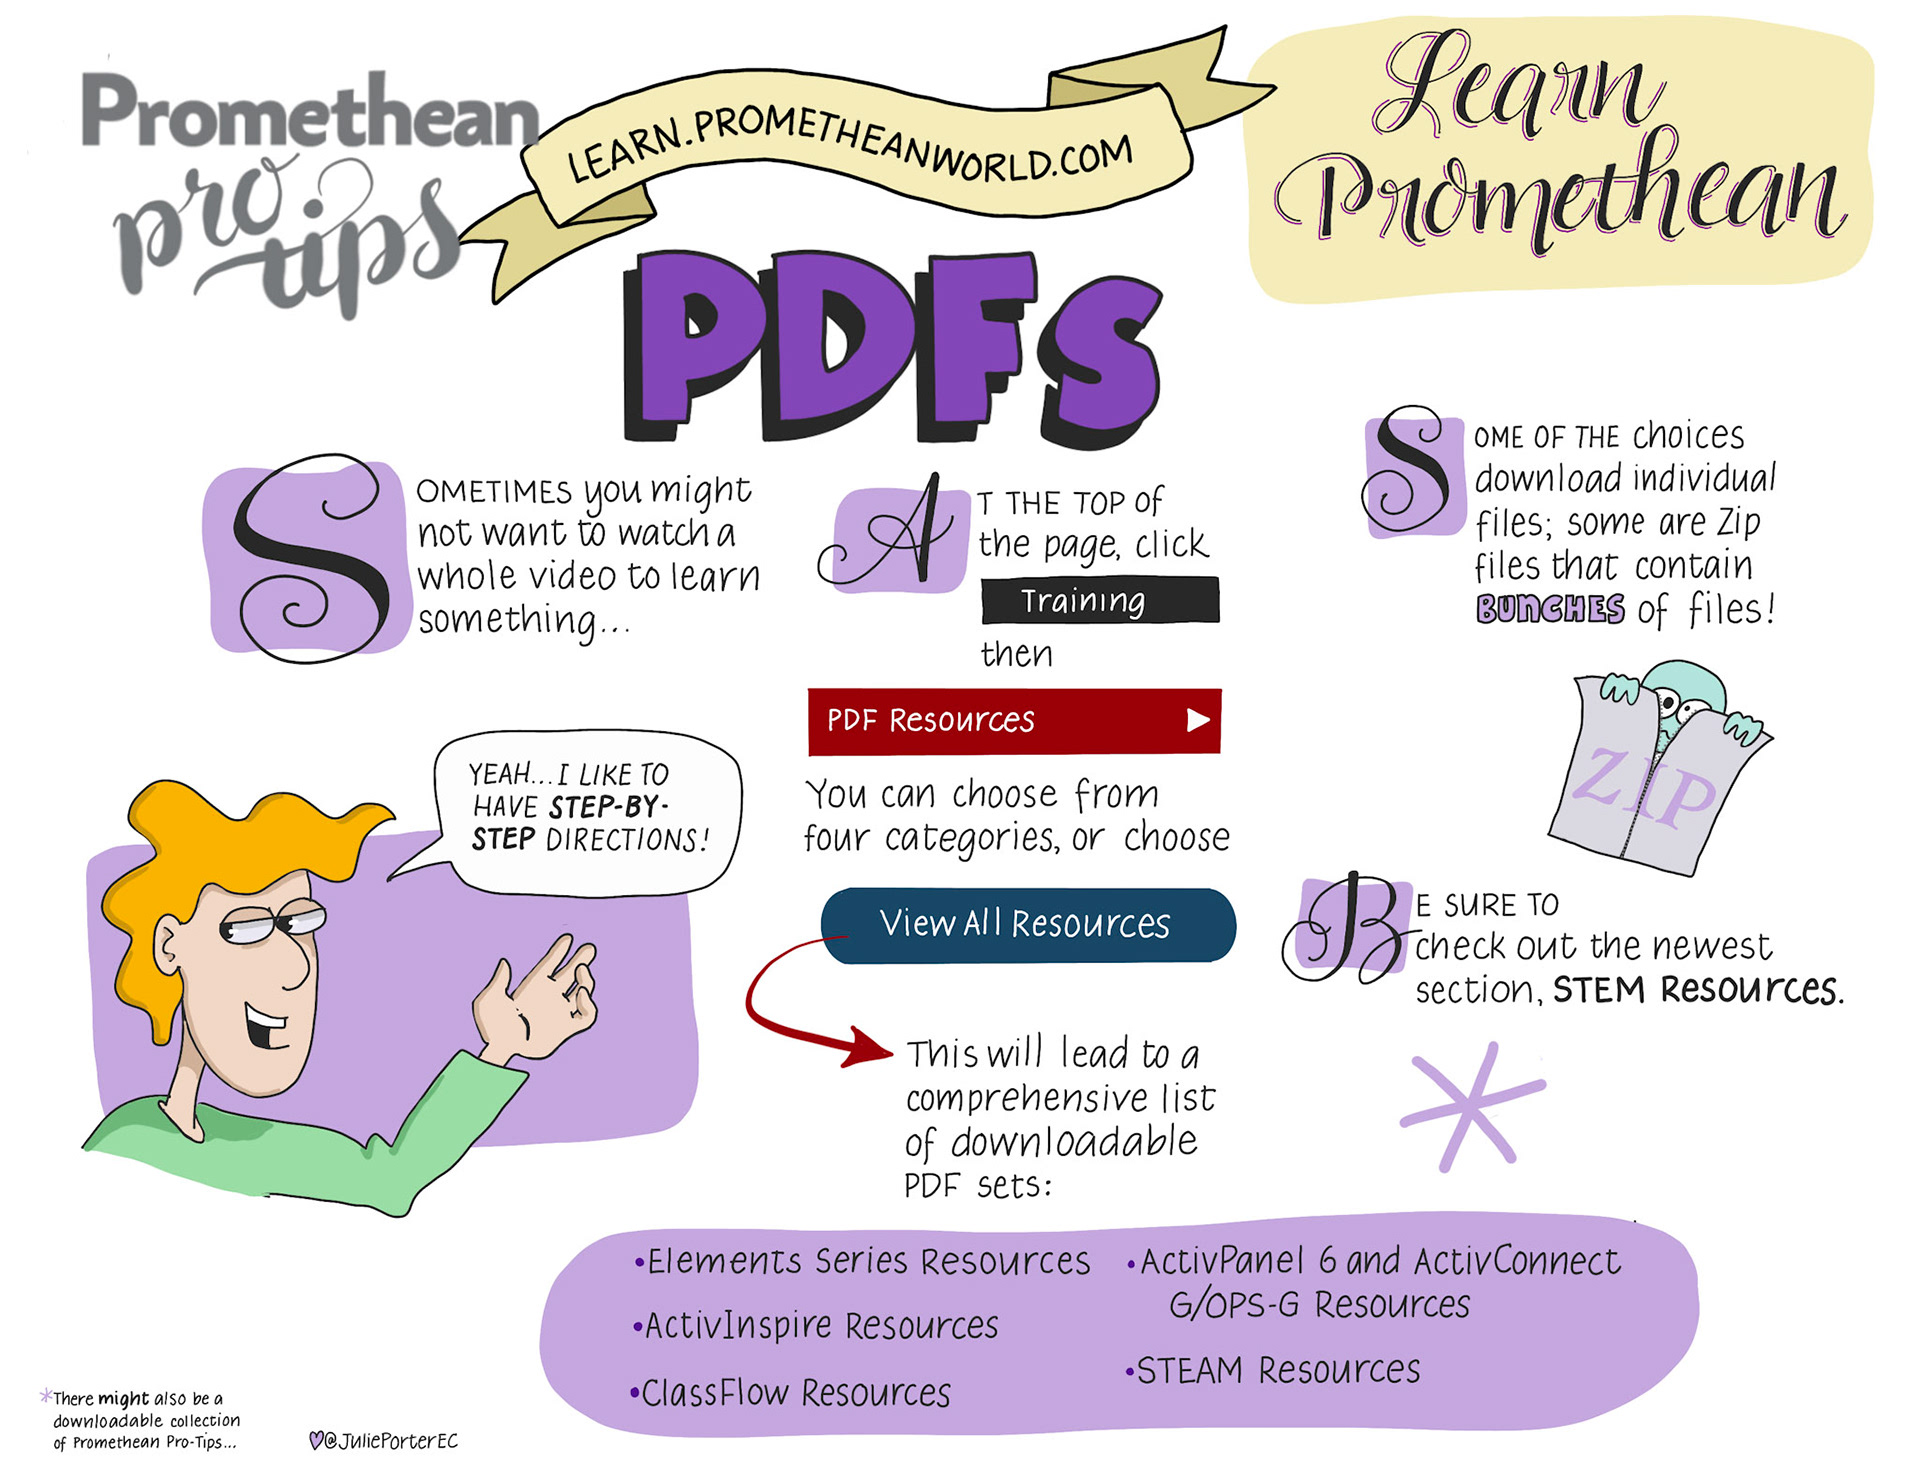 Promethean
pro
tips
LEARN.PROMETHEANWORLD.COM
Learn
Promethean
PDFS
SOMETIMES you might
not want to watch a
whole video to learn
something...
YEAH...I LIKE TO
HAVE STEP-BY-
STEP DIRECTIONS!
AT THE TOP of
the page, click
Training
then
PDF Resources
You can choose from
four categories, or choose
View All Resources
This will lead to a
comprehensive list
of downloadable
PDF sets:
SOME OF THE choices
download individual
files; some are Zip
files that contain
BUNCHES of files!
ZIP
BE SURE TO
check out the newest
section, STEM Resources.
*
•Elements Series Resources
•ActivInspire Resources
•ClassFlow Resources
•ActivPanel 6 and ActivConnect
G/OPS-G Resources
•STEAM Resources
*There might also be a
downloadable collection
of Promethean Pro-Tips...
@JuliePorterEC